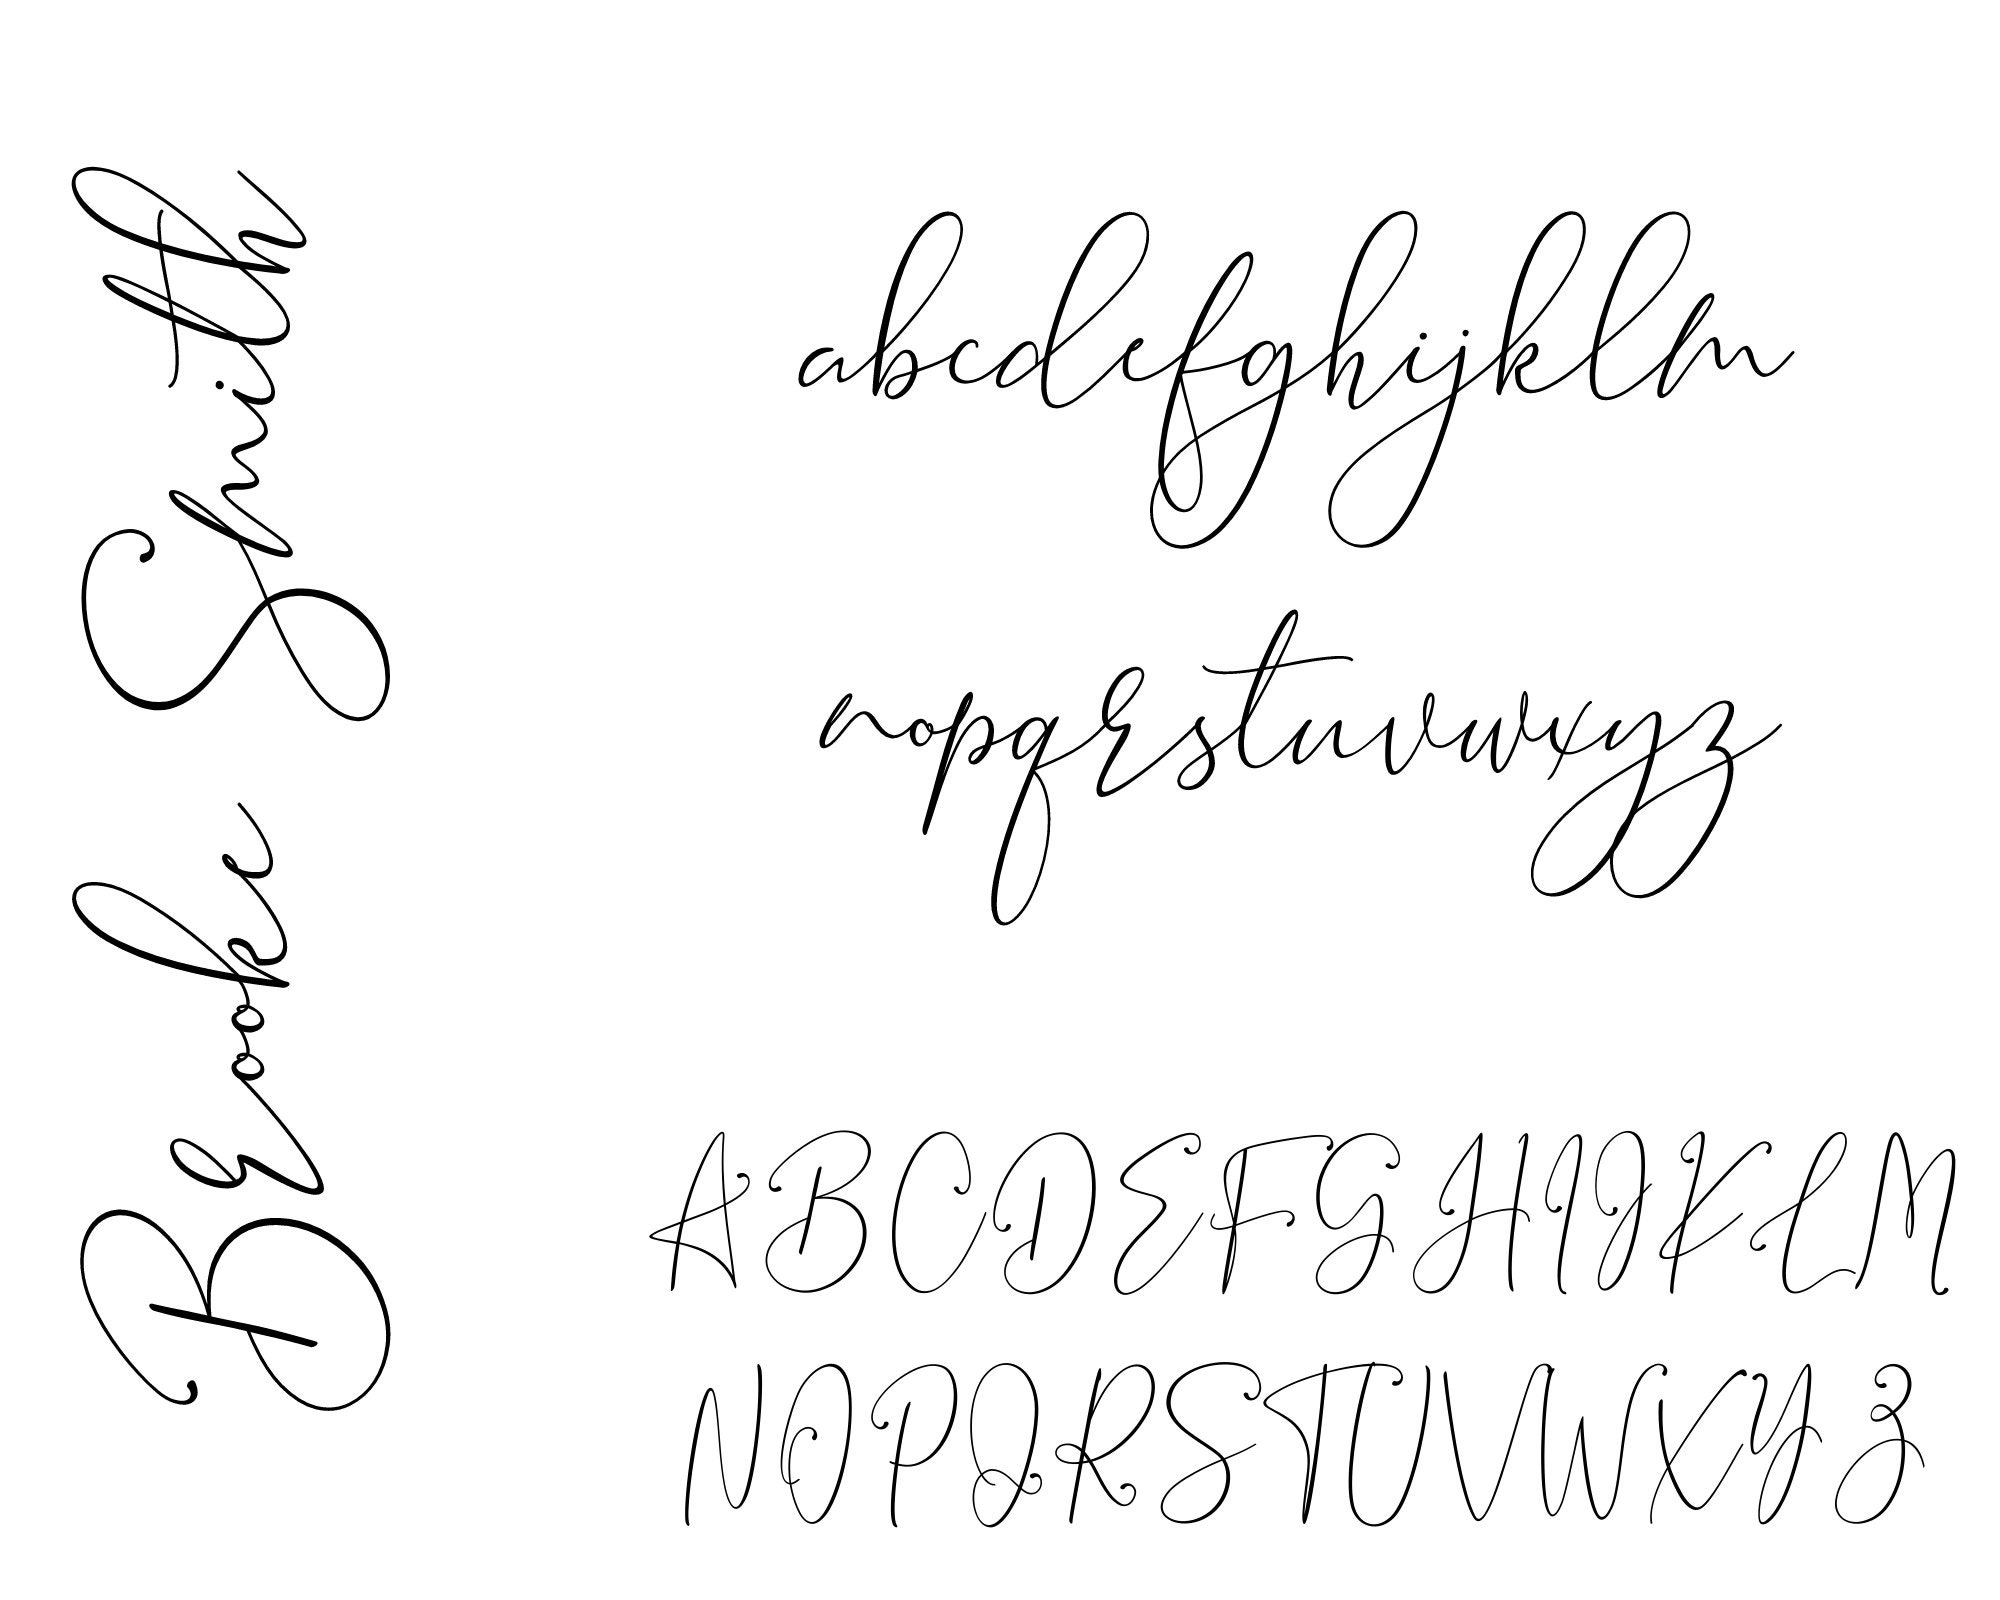 Brooke Smith
abcdefghijklm
nopqrstuvwxyz
ABCDEFGHIJKLM
NOPQRSTUVWXYZ